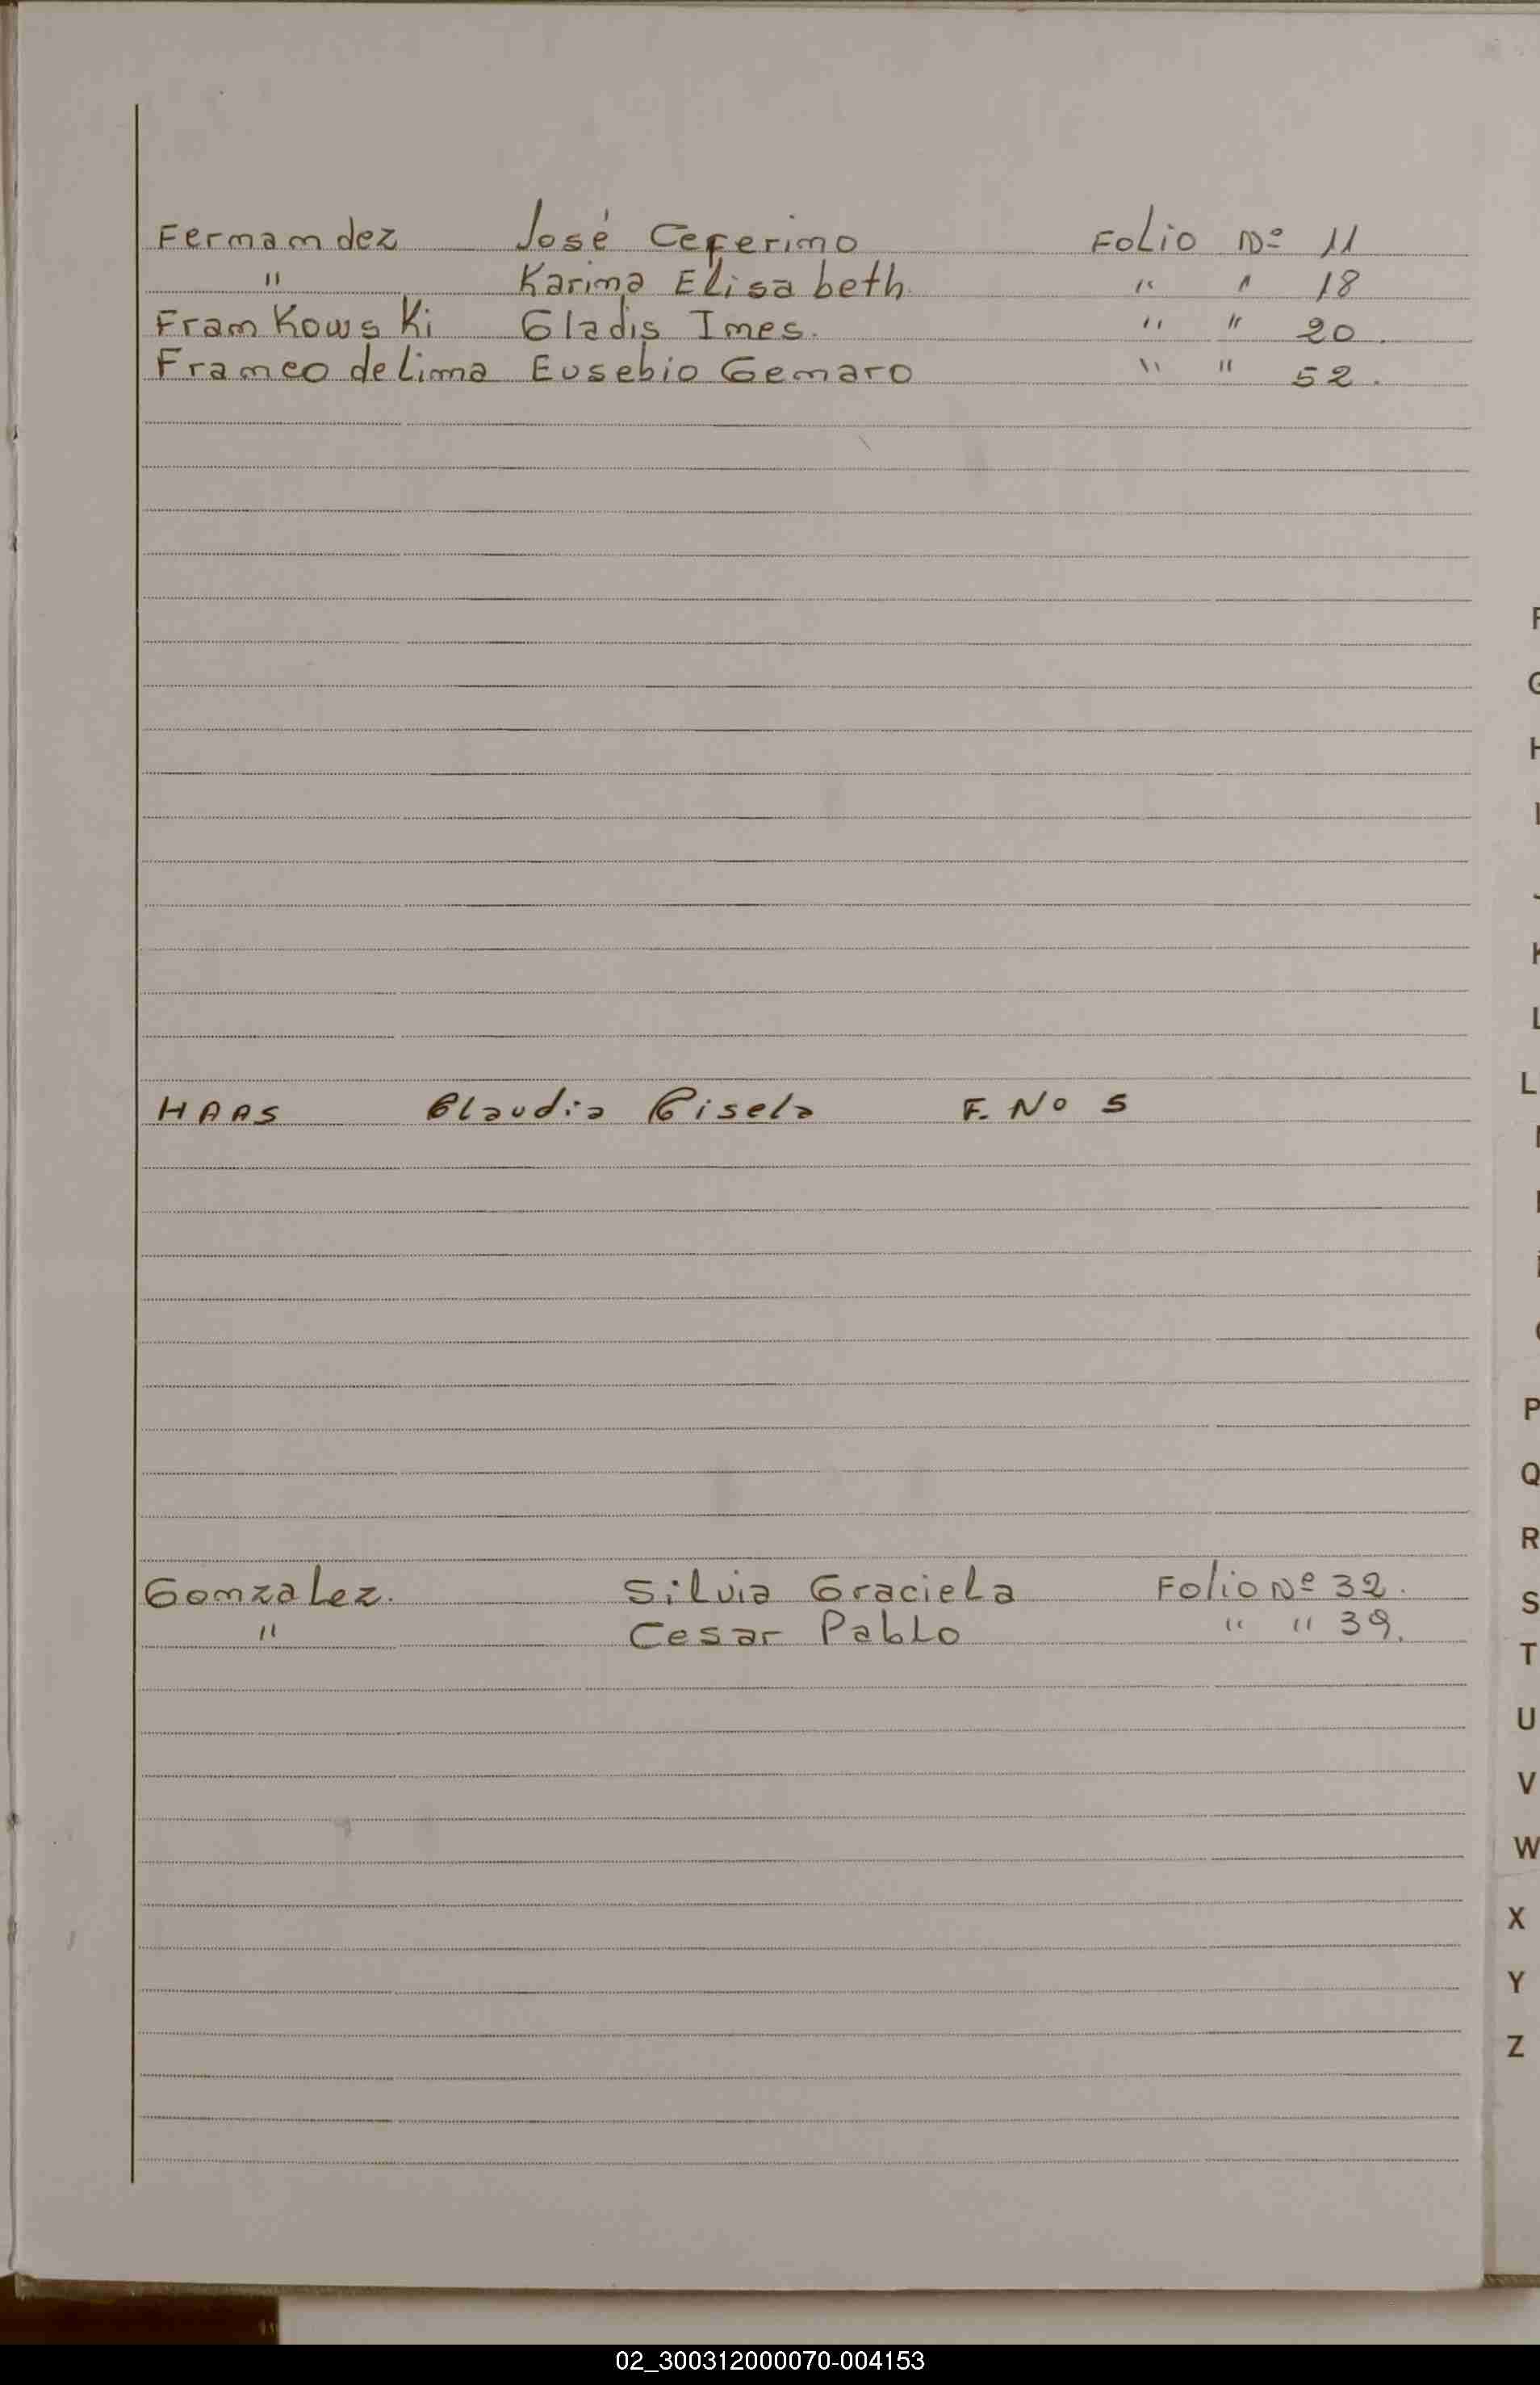 Fernandez José Ceferino Folio Nº 11
" Karina Elisabeth. " " 18
Frankowski Gladis Ines. " " 20.
Franco de Lima Eusebio Genaro " " 52.
HAAS Claudia Gisela F. No 5
Gonzalez. Silvia Graciela Folio Nº 32.
" Cesar Pablo " " 39.
H
J
K
L
P
Q
R
S
T
U
V
W
X
Y
Z
02_300312000070-004153